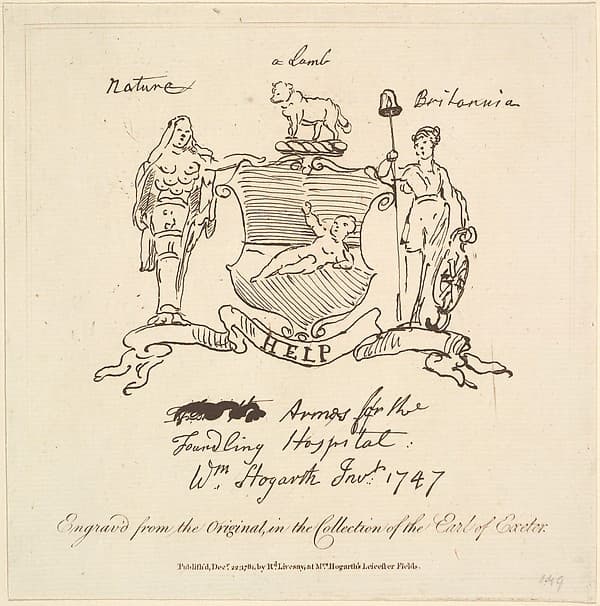 a Lamb
Nature
Britannia
HELP
Armes for the
Foundling Hospital:
Wm. Hogarth Invt. 1747
Engrav'd from the Original, in the Collection of the Earl of Exeter.
Publish'd, Decr. 22. 1781, by Rd. Livesay, at Mrs. Hogarth's Leicester Fields.